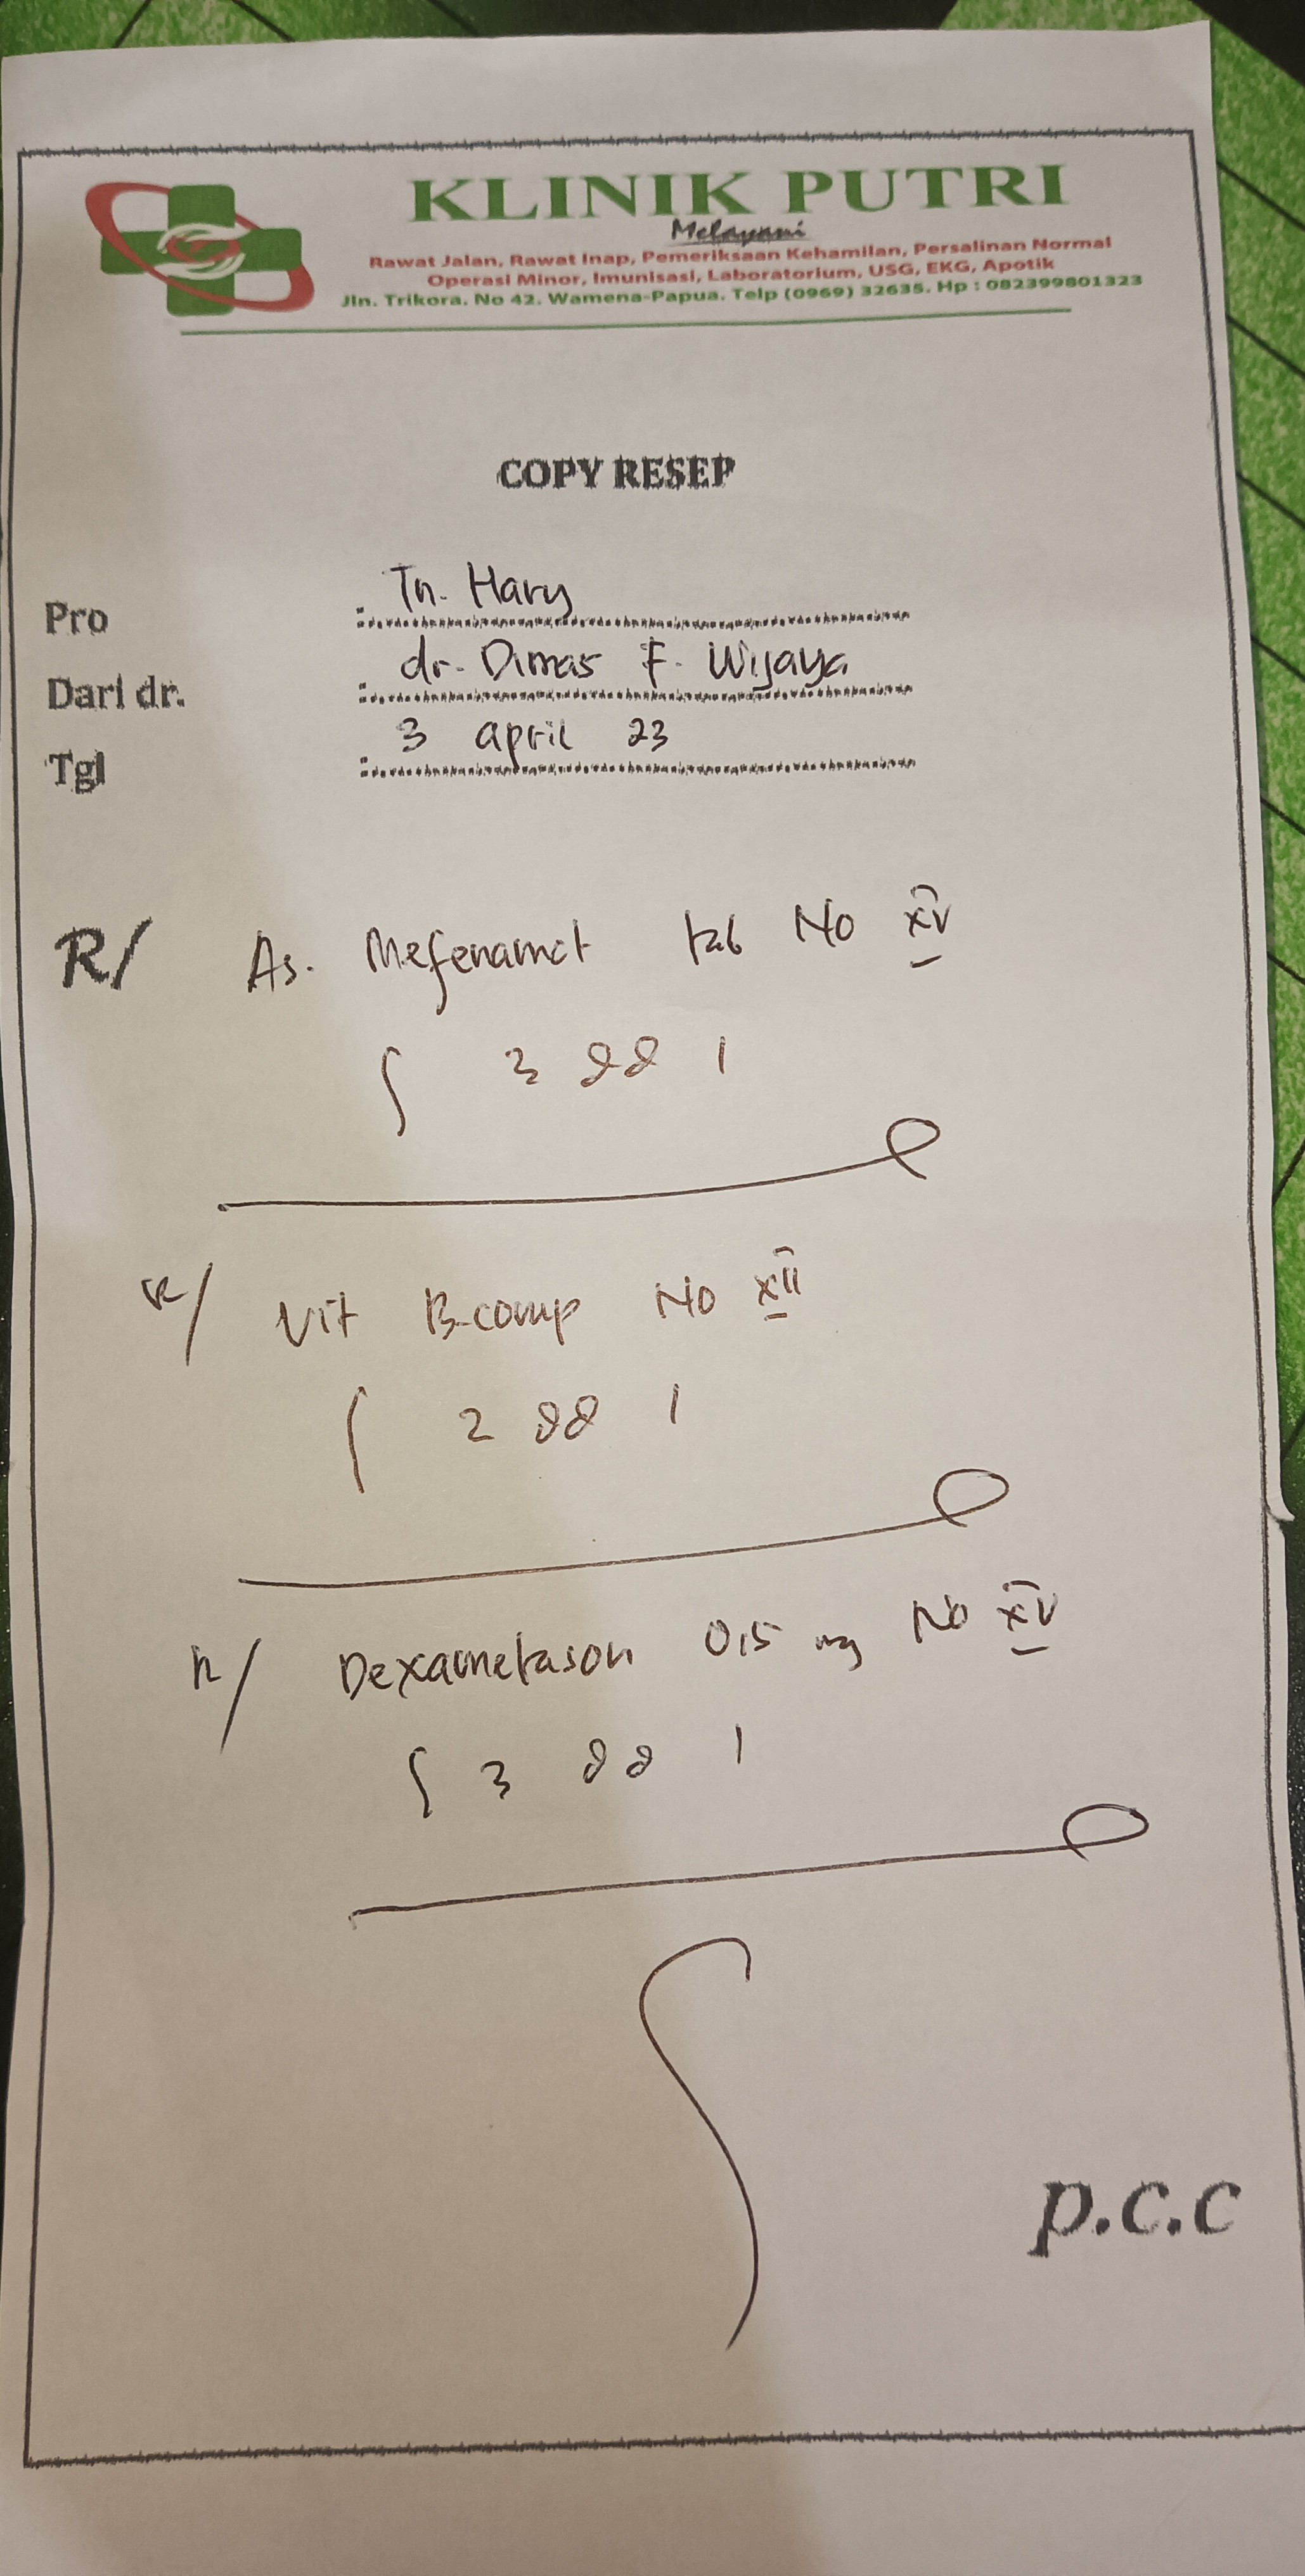 KLINIK PUTRI
Melayani
Rawat Jalan, Rawat Inap, Pemeriksaan Kehamilan, Persalinan Normal
Operasi Minor, Imunisasi, Laboratorium, USG, EKG, Apotik
Jln. Trikora. No 42. Wamena-Papua. Telp (0969) 32635. Hp : 082399801323
COPY RESEP
Pro : Tn. Hary
Dari dr. : dr. Dimas F. Wijaya
Tgl : 3 april 23
R/ As. Mefenamat tab No XV
∫ 3 dd 1
R/ Vit B-comp No XII
∫ 2 dd 1
R/ Dexametason 0,5 mg No XV
∫ 3 dd 1
p.c.c